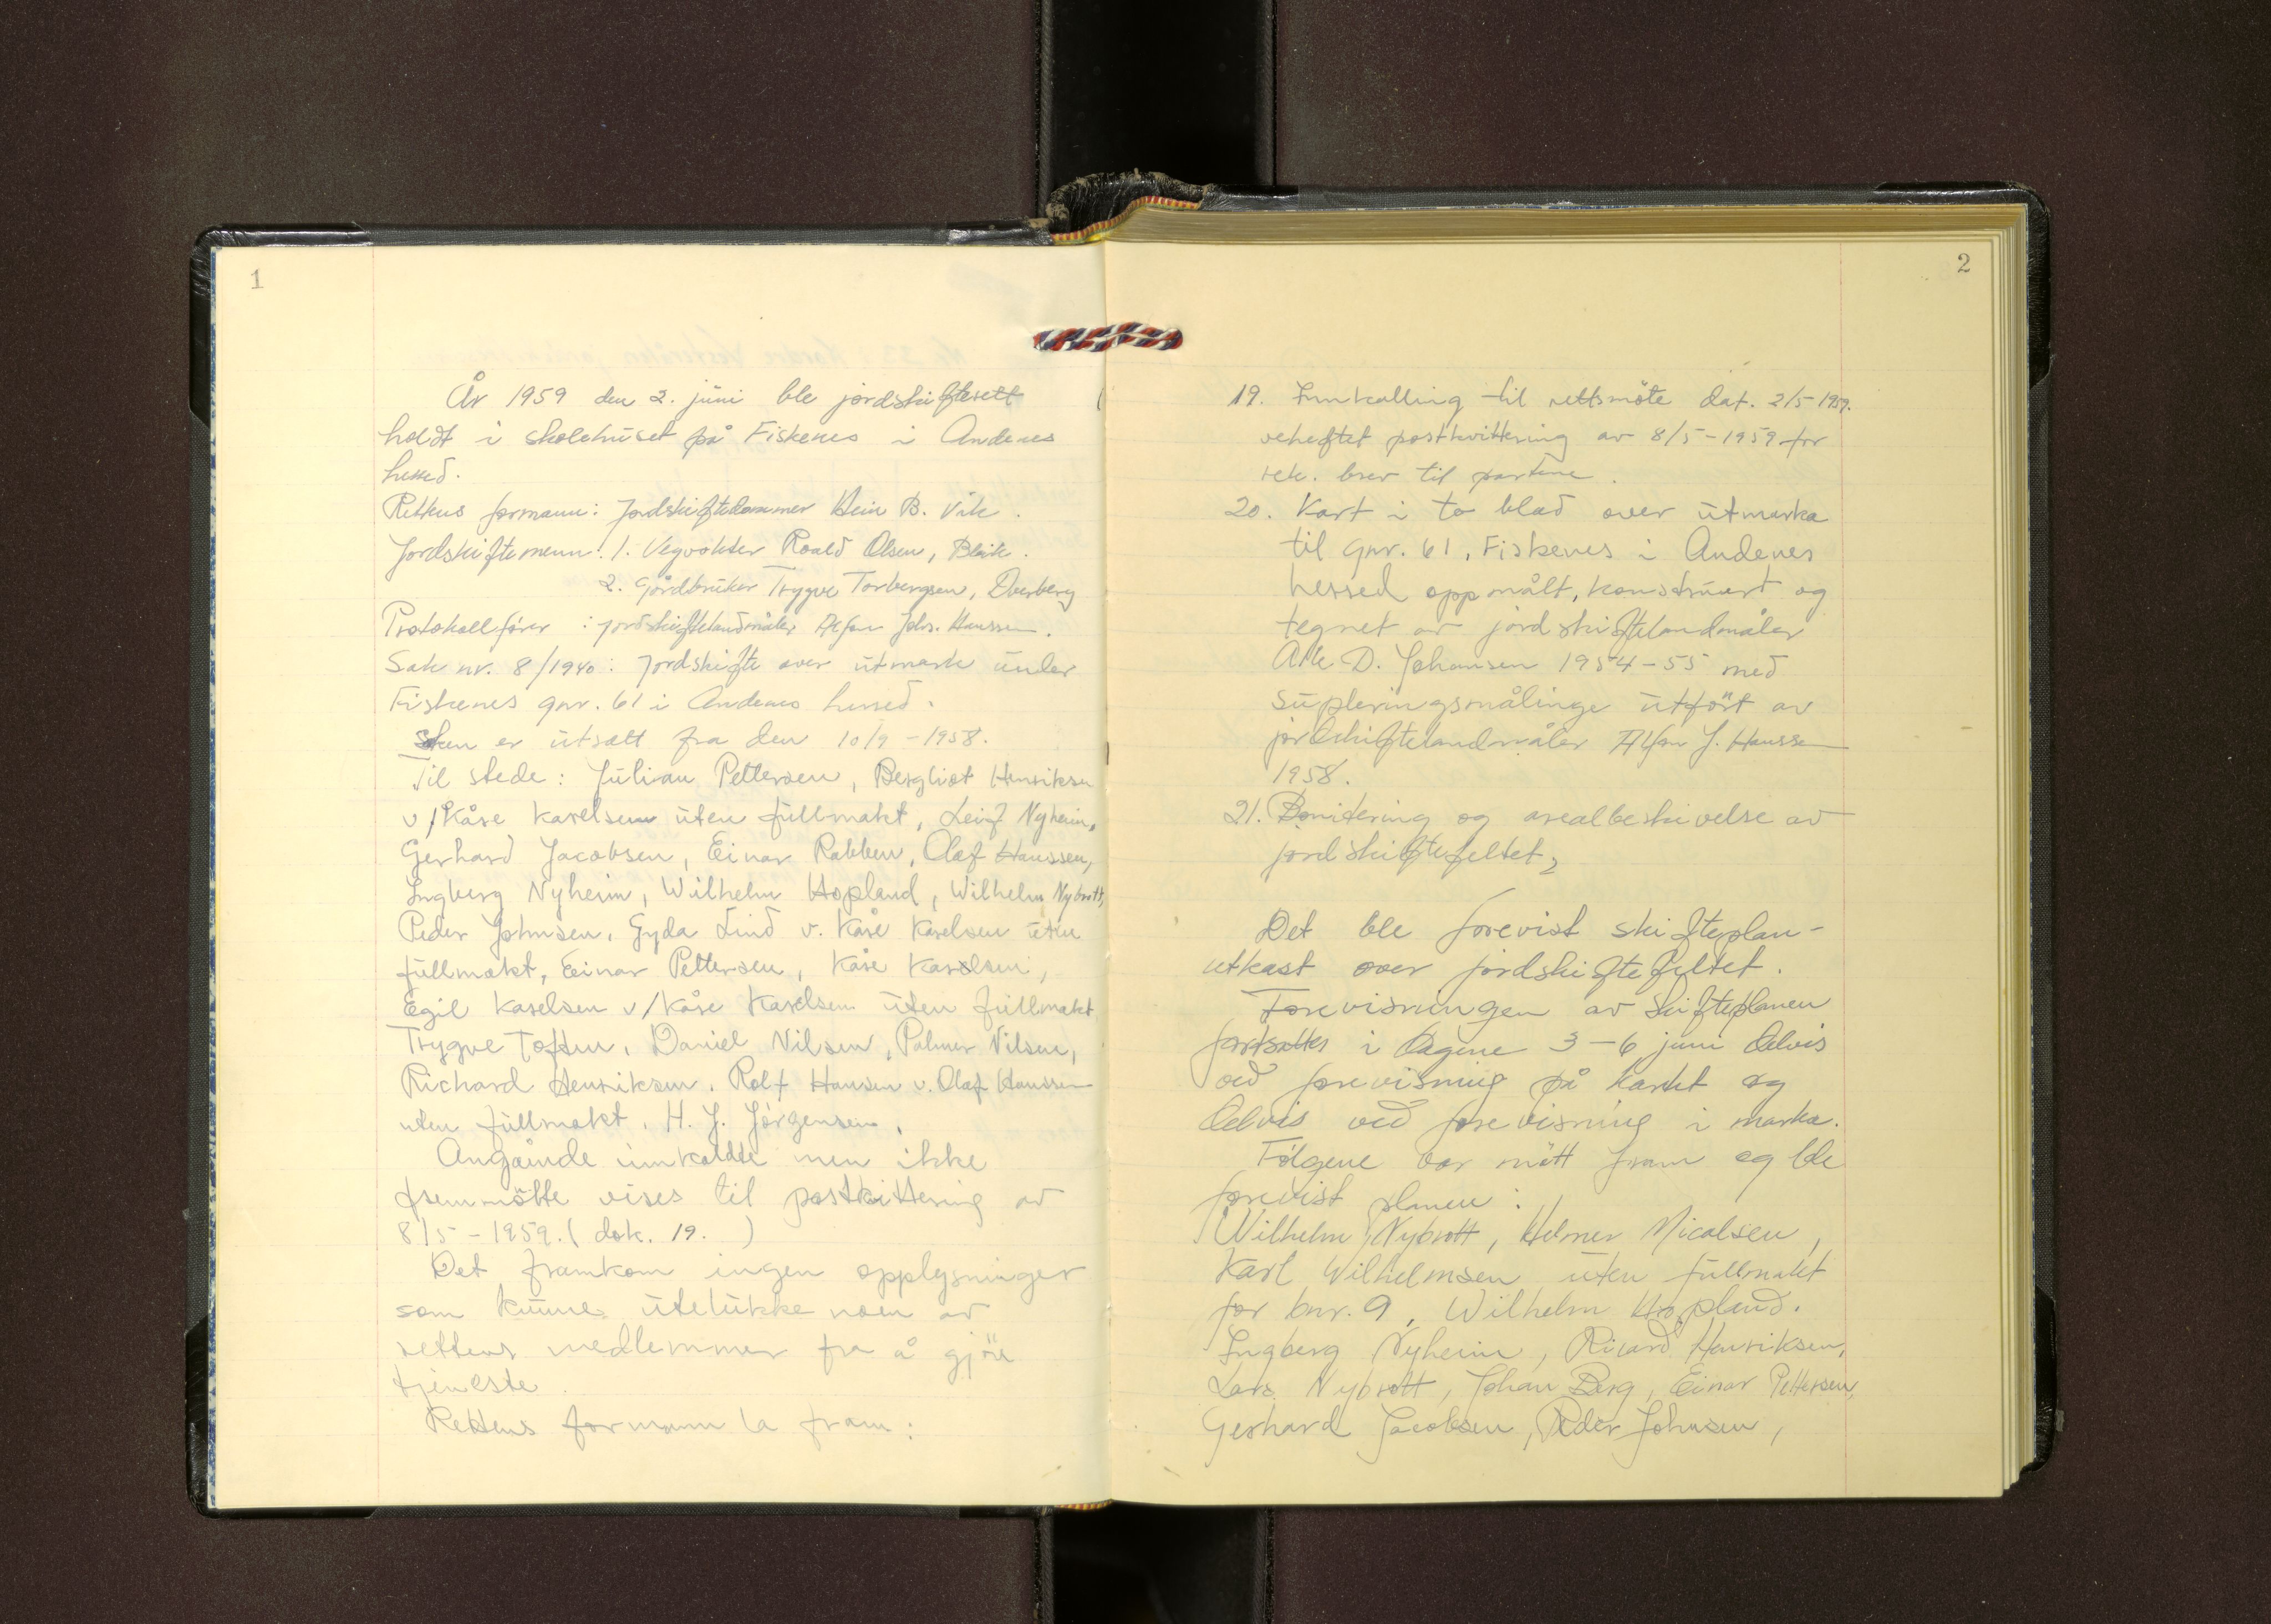 1
År 1959 den 2. juni ble jordskifterett
holdt i skolehuset på Fiskenes i Andenes
herred.
Rettens formann: Jordskiftedommer Hein B. Vik.
Jordskiftemenn: 1. Vegvokter Roald Olsen, Bleik.
2. Gårdbruker Trygve Torbergsen, Dverberg
Protokollfører : jordskiftelandmåler Alfon Johs. Hanssen.
Sak nr. 8/1940: Jordskifte over utmark under
Fiskenes gnr. 61 i Andenes herred.
Saken er utsatt fra den 10/9 - 1958.
Til stede: Julian Pettersen, Bergliot Henriksen
v/Kåre Karelsen uten fullmakt, Leif Nyheim,
Gerhard Jacobsen, Einar Rabben, Olaf Hanssen,
Ingberg Nyheim, Wilhelm Hopland, Wilhelm Nybrott,
Peder Johnsen, Gyda Lind v. Kåre Karelsen uten
fullmakt, Einar Pettersen, Kåre Karelsen,
Egil Karelsen v/Kåre Karelsen uten fullmakt
Trygve Toften, Daniel Nilsen, Palmer Nilsen,
Richard Henriksen, Rolf Hansen v. Olaf Hanssen
uten fullmakt, H. J. Jørgensen.
Angående innkaldte men ikke
fremmötte vises til postkvittering av
8/5 - 1959. ( dok. 19. )
Det framkom ingen opplysninger
som kunne utelukke noen av
rettens medlemmer fra å gjöre
tjeneste.
Rettens formann la fram:
2
19. Innkalling til rettsmöte dat. 2/5-1959.
veheftet postkvittering av 8/5-1959 for
rek. brev til partene.
20. Kart i to blad over utmarka
til gnr. 61, Fiskenes i Andenes
herred oppmålt, konstruert og
tegnet av jordskiftelandmåler
Atle D. Johansen 1954-55 med
supleringsmålinge utfört av
jordskiftelandmåler Alfon J. Hanssen
1958.
21. Bonitering og arealbeskivelse av
jordskiftefeltet,
Det ble forevist skifteplan-
utkast over jordskiftefeltet.
Forevisningen av skifteplanen
fortsattes i dagene 3-6 juni delvis
ved forevisning på kartet og
delvis ved forevisning i marka.
Følgene var mött fram og ble
forevist planen:
Wilhelm Nybrott, Helmer Nicalsen,
Karl Wilhelmsen uten fullmakt
for bnr. 9, Wilhelm Hopland.
Ingberg Nyheim, Ricard Henriksen,
Lars Nybrott, Johan Berg, Einar Pettersen,
Gerhard Jacobsen, Peder Johnsen,